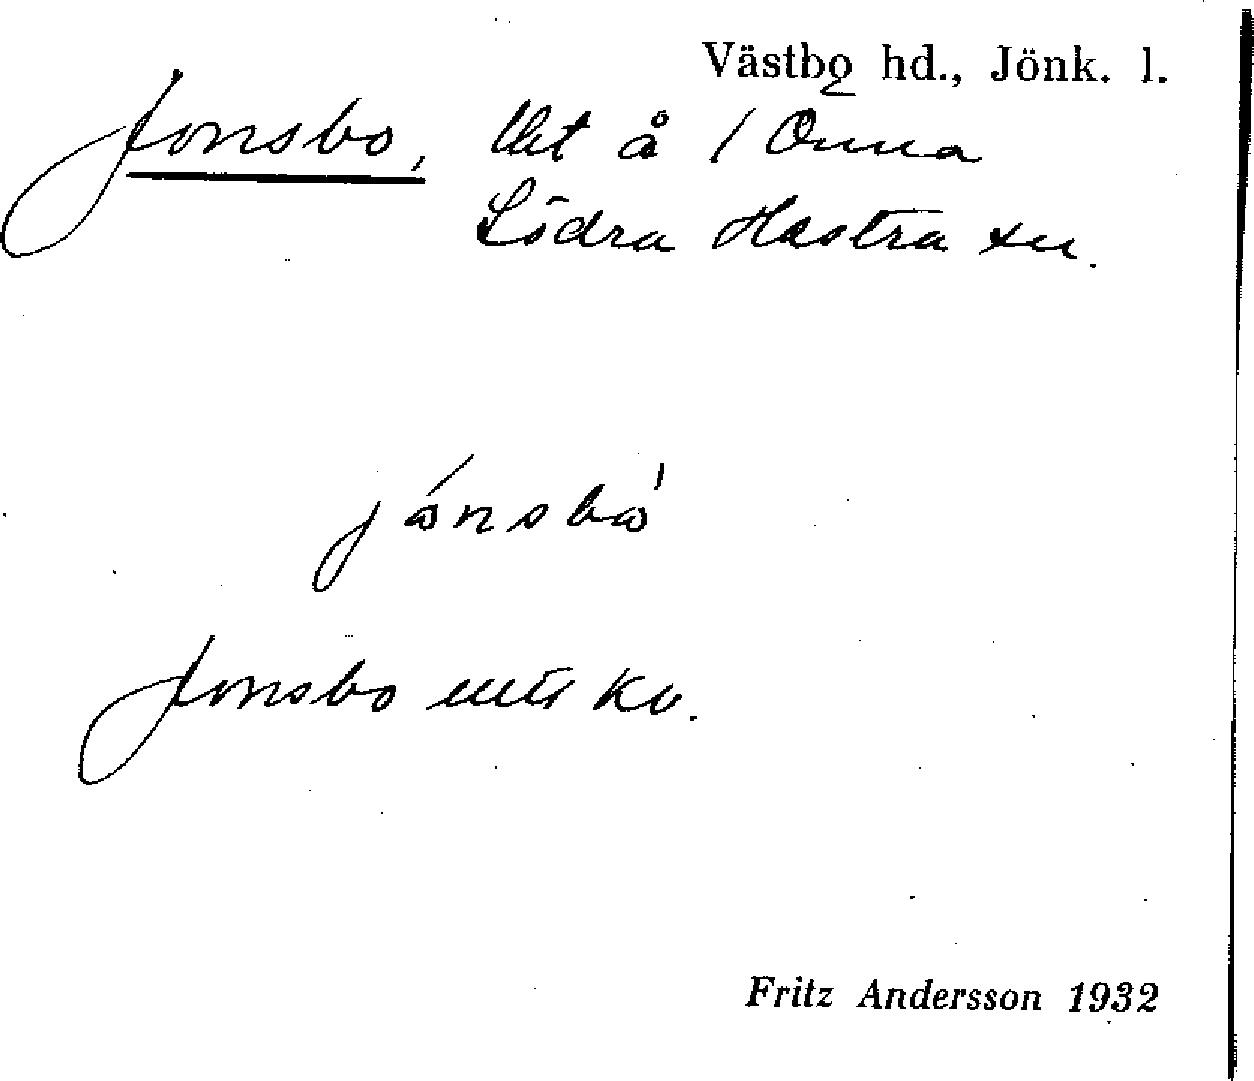 Västbo hd., Jönk. l.
Jonsbo, lht å 1 Önna
Södra Hestra sn.
jónsbo̍
Jonsbo enl. kv.
Fritz Andersson 1932